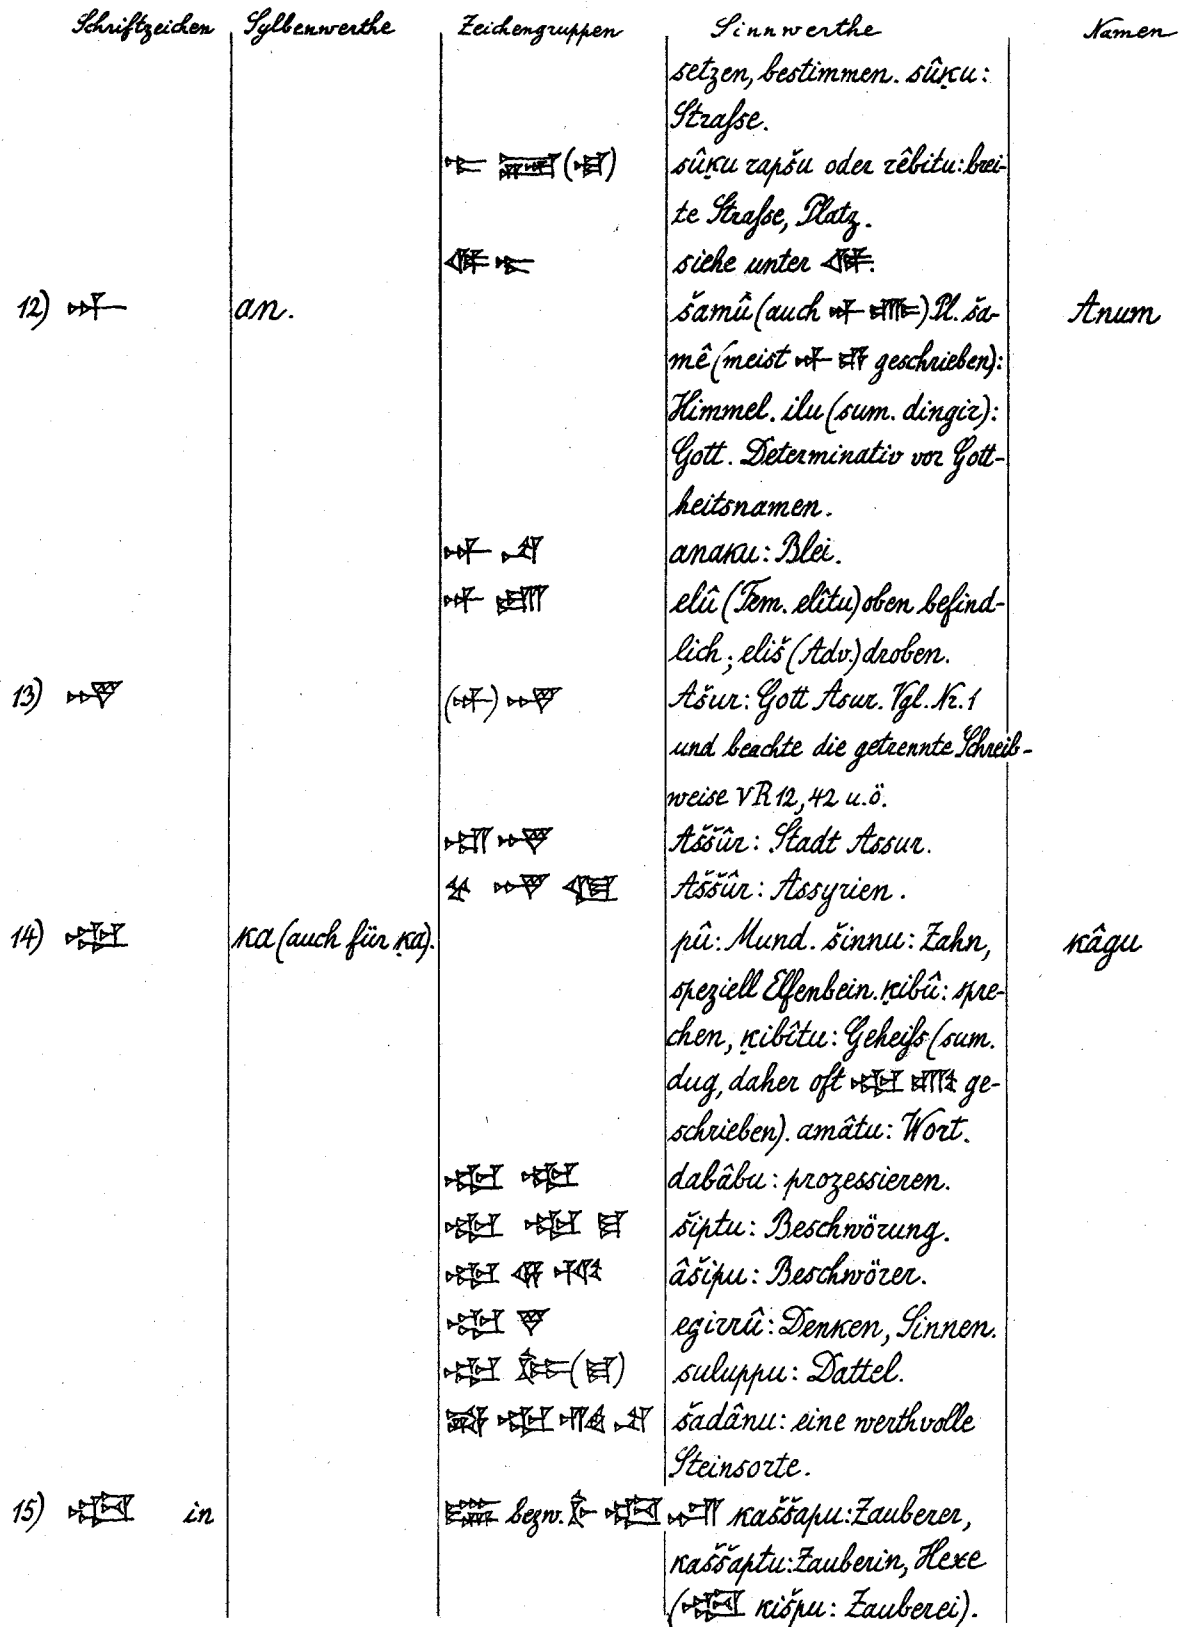 Schriftzeichen Sylbenwerthe Zeichengruppen Sinnwerthe Namen
setzen, bestimmen. sûḳu:
Straſse.
𒋻 (𒀊) sûḳu rapšu oder rêbitu: brei-
te Straſse, Platz.
siehe unter
12) 𒀭 an. šamû (auch 𒀭 ) Pl. ša- Anum
mê (meist 𒀭 𒂊 geschrieben):
Himmel. ilu (sum. dingir):
Gott. Determinativ vor Gott-
heitsnamen.
𒀭 𒈾 anaku: Blei.
𒀭 𒋫 elû (Fem. elîtu) oben befind-
lich; eliš (Adv.) droben.
13) (𒀭) Ašur: Gott Asur. Vgl. Nr. 1
und beachte die getrennte Schreib-
weise VR 12, 42 u. ö.
Aššûr: Stadt Assur.
𒆳 𒆠 Aššûr: Assyrien.
14) 𒅗 ka (auch für ḳa). pû: Mund. šinnu: Zahn, kâgu
speziell Elfenbein. ḳibû: spre-
chen, ḳibîtu: Geheiſs (sum.
dug, daher oft 𒅗 𒂵 ge-
schrieben). amâtu: Wort.
𒅗 𒅗 dabâbu: prozessieren.
𒅗 𒅗 𒈠 šiptu: Beschwörung.
𒅗 âšipu: Beschwörer.
𒅗 𒃻 egirrû: Denken, Sinnen.
𒅗 (𒈠) suluppu: Dattel.
𒅗 𒈾 šadânu: eine werthvolle
Steinsorte.
15) in bezw. kaššapu: Zauberer,
kaššaptu: Zauberin, Hexe
( kišpu: Zauberei).